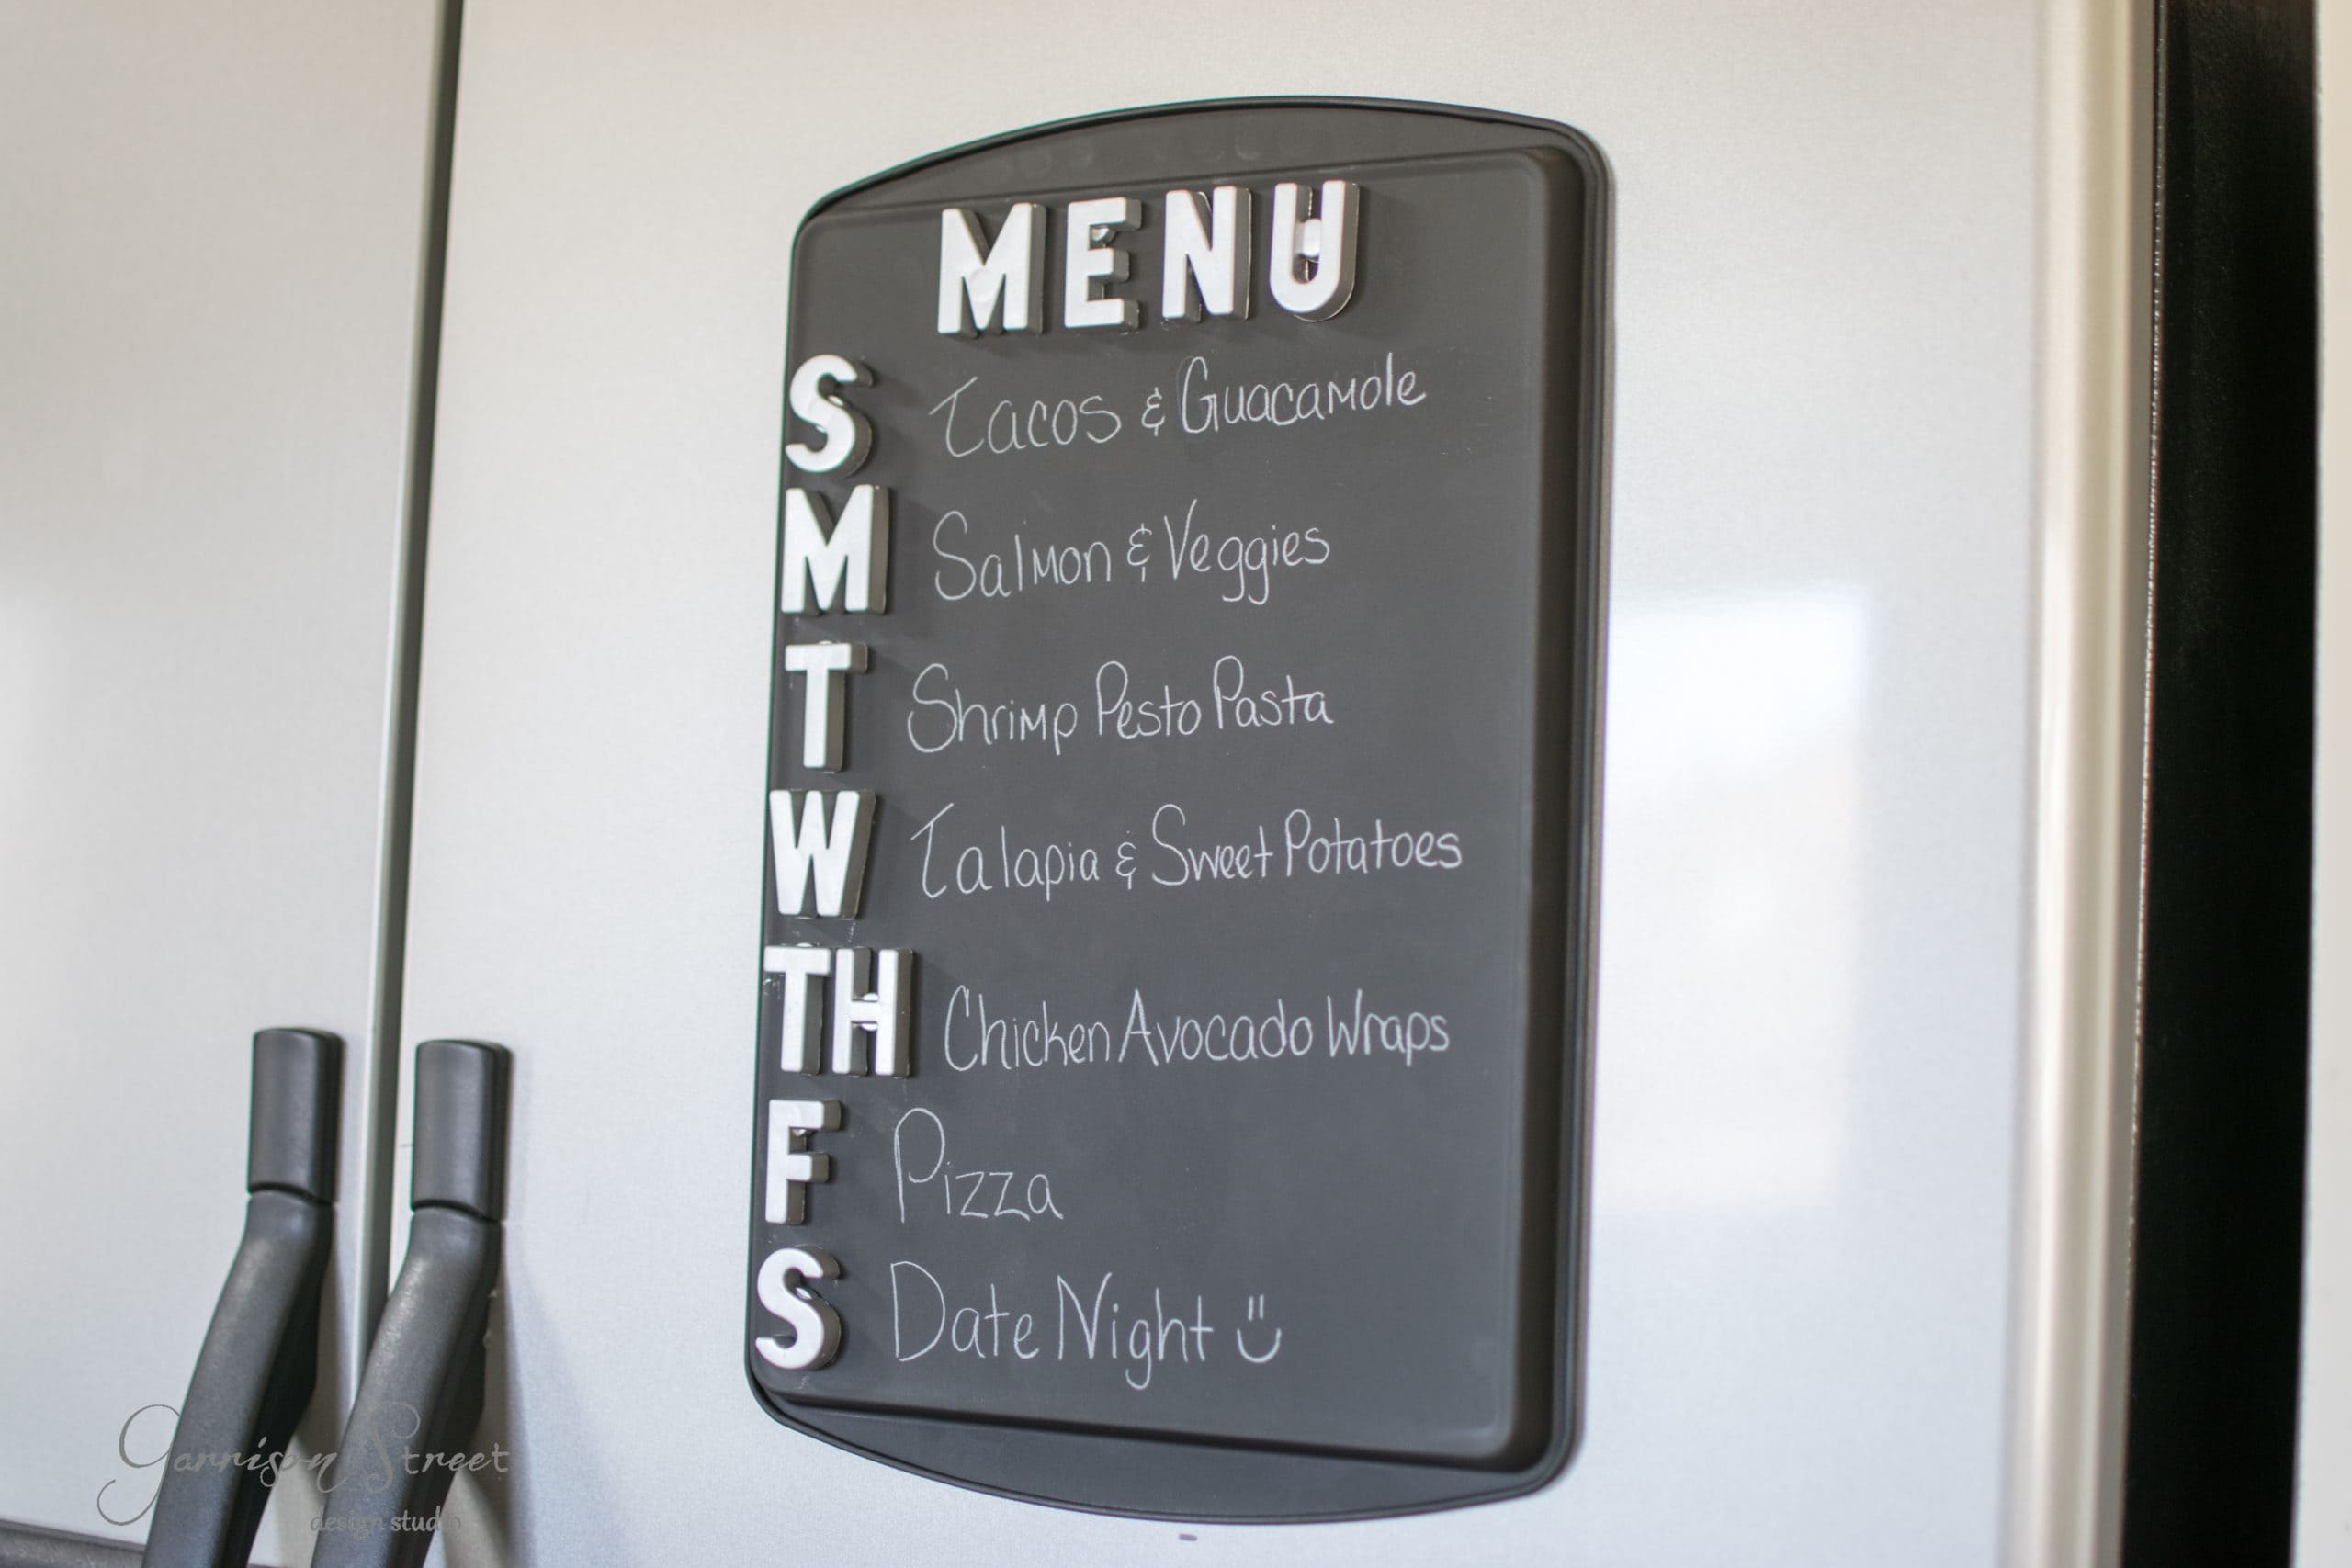 MENU
S Tacos & Guacamole
M Salmon & Veggies
T Shrimp Pesto Pasta
W Talapia & Sweet Potatoes
TH Chicken Avocado Wraps
F Pizza
S Date Night
Garrison Street
design studio